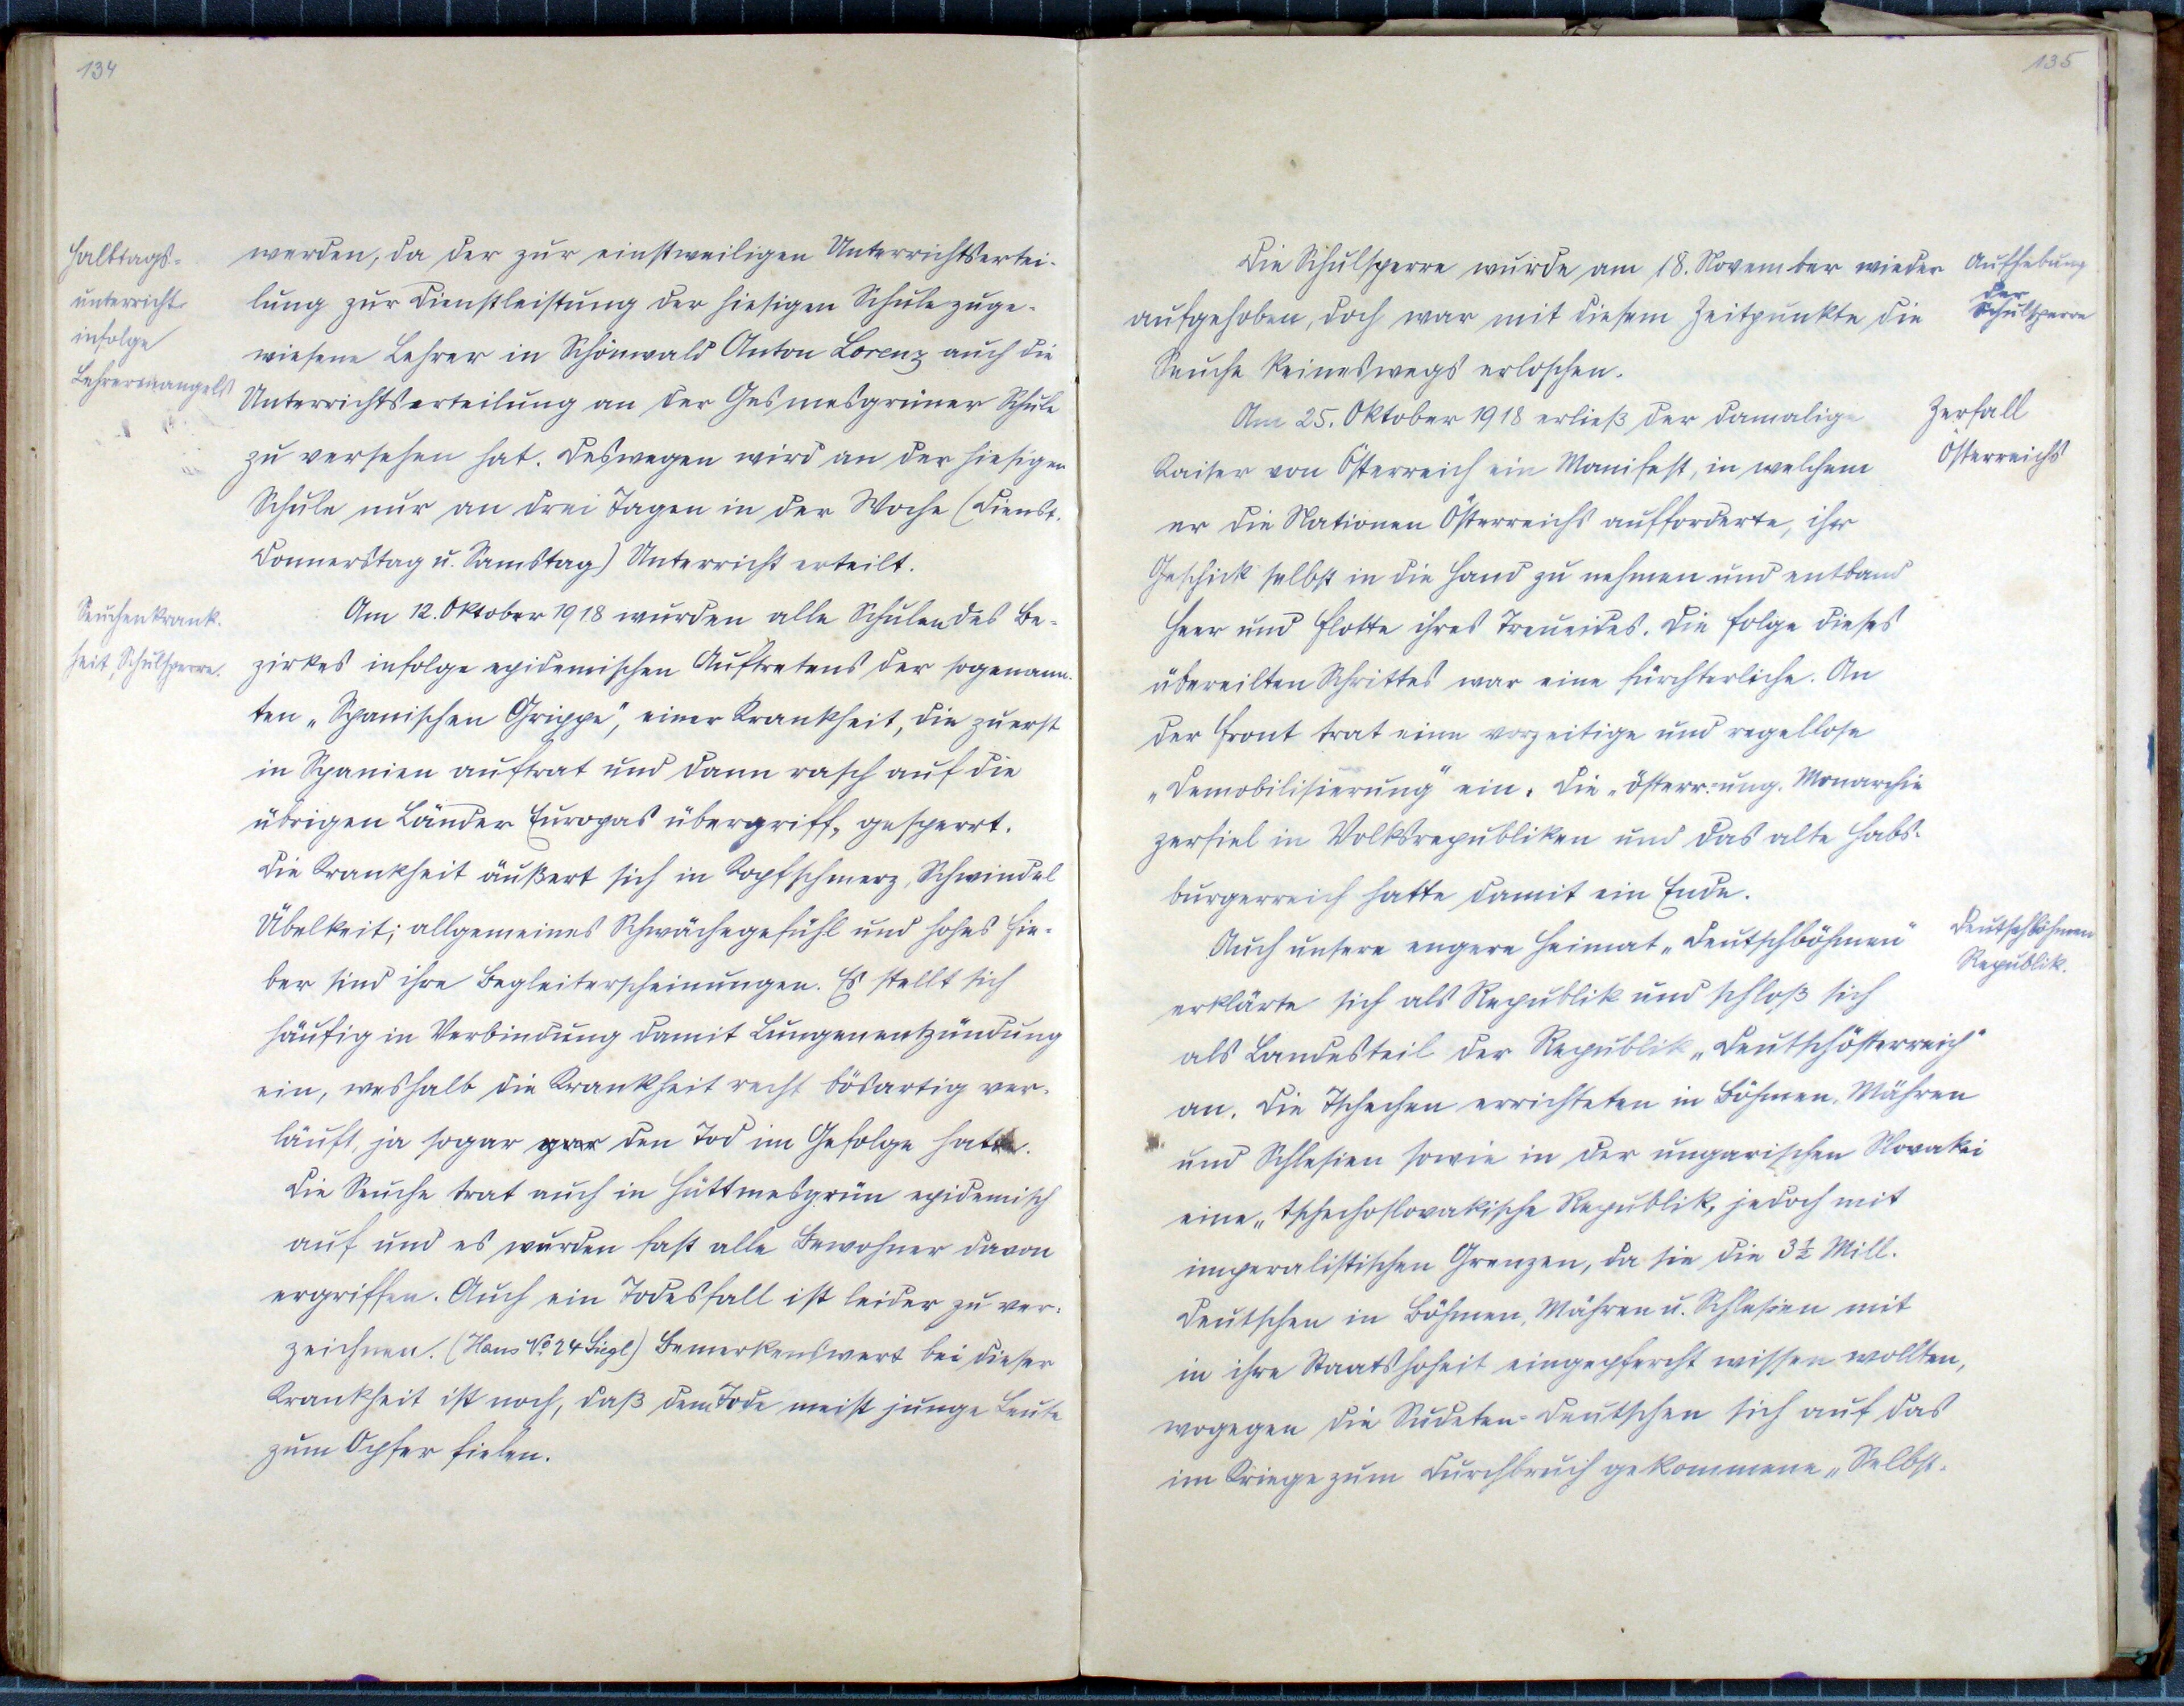 134
Halbtags-
unterricht
infolge
Lehrermangels
werden, da der zur einstweiligen Unterrichtsertei-
lung zur Dienstleistung der hiesigen Schule zuge-
wiesene Lehrer in Schönwald Anton Lorenz auch die
Unterrichtserteilung an der Gesmesgrüner Schule
zu versehen hat. Deswegen wird an der hiesigen
Schule nur an drei Tagen in der Woche (Dienst.
Donnerstag u. Samstag) Unterricht erteilt.
Seuchenkrank-
heit, Schulsperre.
Am 12. Oktober 1918 wurden alle Schulen des Be-
zirkes infolge epidemischen Auftretens der sogenann-
ten „Spanischen Grippe", einer Krankheit, die zuerst
in Spanien auftrat und dann rasch auf die
übrigen Länder Europas übergriff, gesperrt.
Die Krankheit äußert sich in Kopfschmerz, Schwindel
Übelkeit; allgemeines Schwächegefühl und hohes Fie-
ber sind ihre Begleiterscheinungen. Es stellt sich
häufig in Verbindung damit Lungenentzündung
ein, weshalb die Krankheit recht bösartig ver-
läuft, ja sogar gar den Tod im Gefolge hat.
Die Seuche trat auch in Hüttmesgrün epidemisch
auf und es wurden fast alle Bewohner davon
ergriffen. Auch ein Todesfall ist leider zu ver-
zeichnen. (Hans No 24 Siegl) Bemerkenswert bei dieser
Krankheit ist noch, daß dem Tode meist junge Leute
zum Opfer fielen.
135
Die Schulsperre wurde am 18. November wieder
aufgehoben, doch war mit diesem Zeitpunkte die
Seuche keineswegs erloschen.
Aufhebung
der
Schulsperre
Am 25. Oktober 1918 erließ der damalige
Kaiser von Österreich ein Manifest, in welchem
er die Nationen Österreichs aufforderte, ihr
Geschick selbst in die Hand zu nehmen und entband
Heer und Flotte ihres Treueides. Die Folge dieses
übereilten Schrittes war eine fürchterliche. An
der Front trat eine vorzeitige und regellose
„Demobilisierung" ein. Die österr.-ung. Monarchie
zerfiel in Volksrepubliken und das alte Habs-
burgerreich hatte damit ein Ende.
Zerfall
Österreichs
Auch unsere engere Heimat „Deutschböhmen"
erklärte sich als Republik und schloß sich
als Landesteil der Republik „Deutschösterreich"
an. Die Tschechen errichteten in Böhmen, Mähren
und Schlesien sowie in der ungarischen Slovakei
eine „tschechoslovakische Republik", jedoch mit
imperalistischen Grenzen, da sie die 3½ Mill.
Deutschen in Böhmen, Mähren u. Schlesien mit
in ihre Staatshoheit eingepfercht wissen wollten,
wogegen die Sudeten-Deutschen sich auf das
im Kriege zum Durchbruch gekommene „Selbst-
Deutschböhmen
Republik.